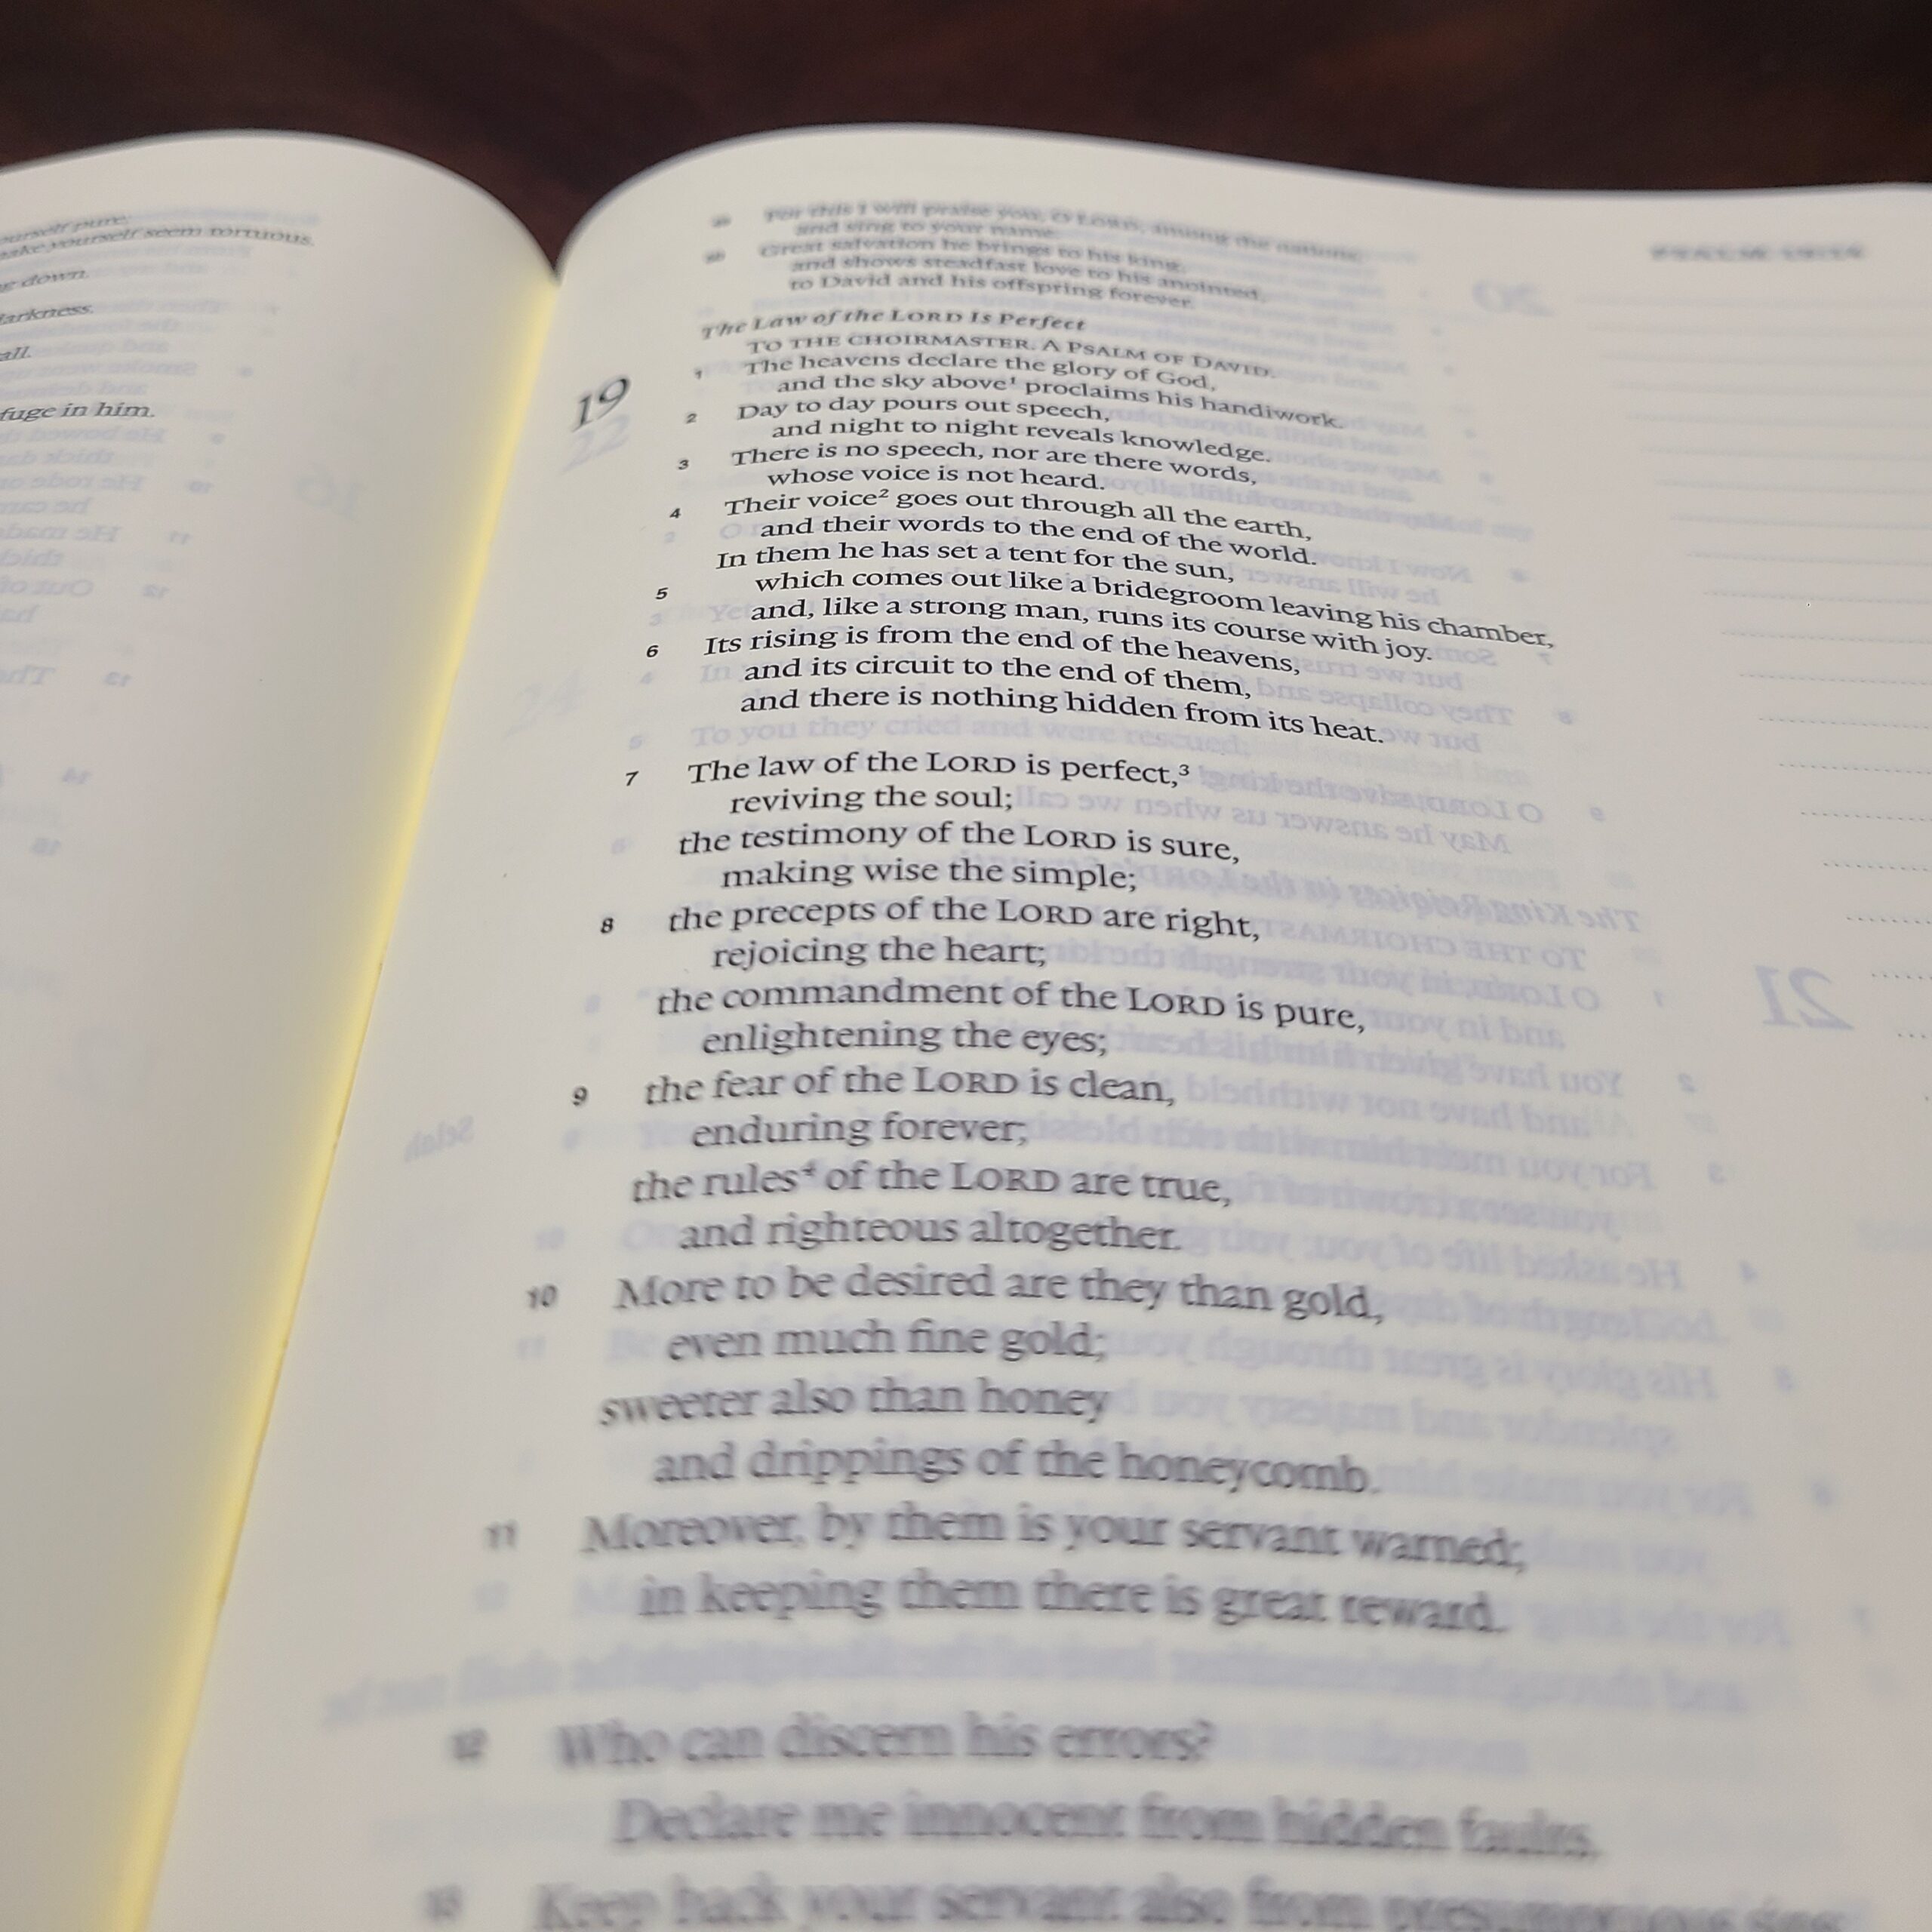 ourself pure;
ake yourself seem tortuous.
g down.
darkness.
all.
fuge in him.
For this I will praise you, O LORD, among the nations,
and sing to your name.
Great salvation he brings to his king,
and shows steadfast love to his anointed,
to David and his offspring forever.
The Law of the LORD Is Perfect
TO THE CHOIRMASTER. A PSALM OF DAVID.
19
1 The heavens declare the glory of God,
and the sky above¹ proclaims his handiwork.
2 Day to day pours out speech,
and night to night reveals knowledge.
3 There is no speech, nor are there words,
whose voice is not heard.
4 Their voice² goes out through all the earth,
and their words to the end of the world.
In them he has set a tent for the sun,
5 which comes out like a bridegroom leaving his chamber,
and, like a strong man, runs its course with joy.
6 Its rising is from the end of the heavens,
and its circuit to the end of them,
and there is nothing hidden from its heat.
7 The law of the LORD is perfect,³
reviving the soul;
the testimony of the LORD is sure,
making wise the simple;
8 the precepts of the LORD are right,
rejoicing the heart;
the commandment of the LORD is pure,
enlightening the eyes;
9 the fear of the LORD is clean,
enduring forever;
the rules⁴ of the LORD are true,
and righteous altogether.
10 More to be desired are they than gold,
even much fine gold;
sweeter also than honey
and drippings of the honeycomb.
11 Moreover, by them is your servant warned;
in keeping them there is great reward.
12 Who can discern his errors?
Declare me innocent from hidden faults.
13 Keep back your servant also from presumptuous sins;